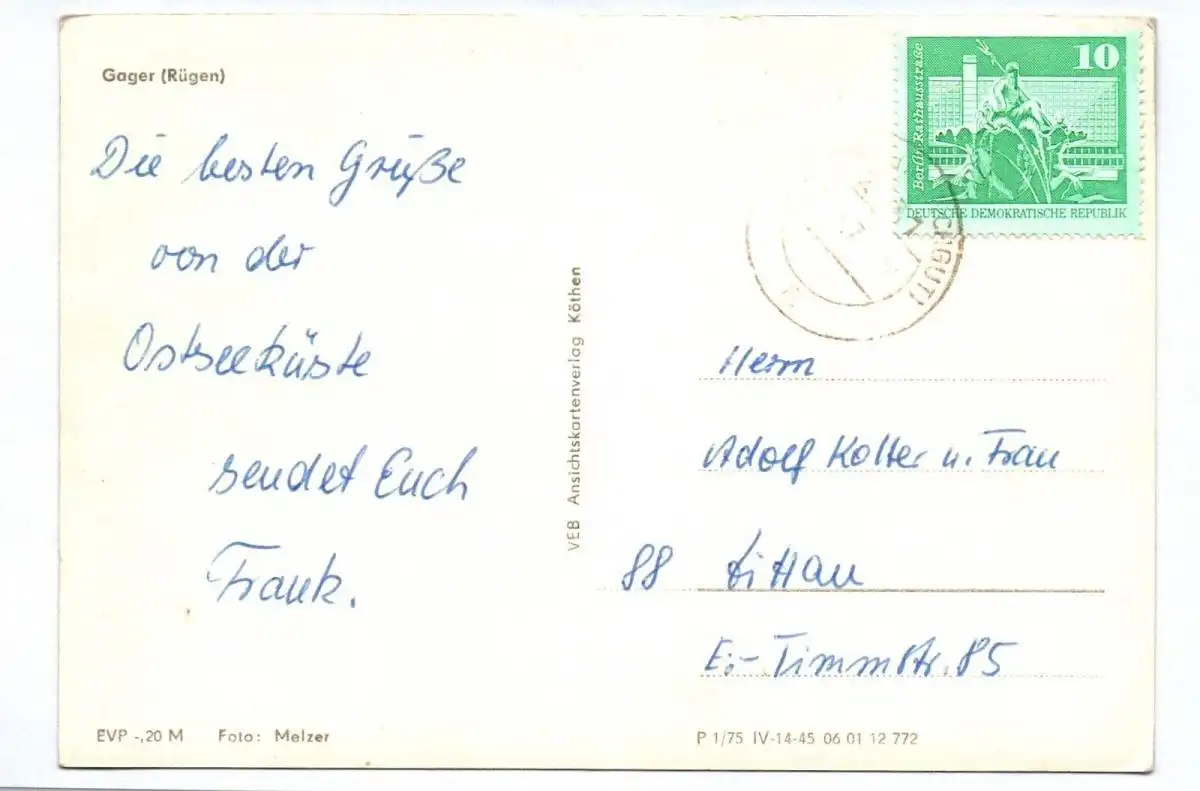 Gager (Rügen)
Die besten Grüße
von der
Ostseeküste
sendet Euch
Frank.
EVP -,20 M Foto: Melzer
VEB Ansichtskartenverlag Köthen
10
Berlin, Rathausstraße
DEUTSCHE DEMOKRATISCHE REPUBLIK
Herrn
Adolf Kolter u. Frau
88 Zittau
E.-Timmstr. 85
P 1/75 IV-14-45 06 01 12 772